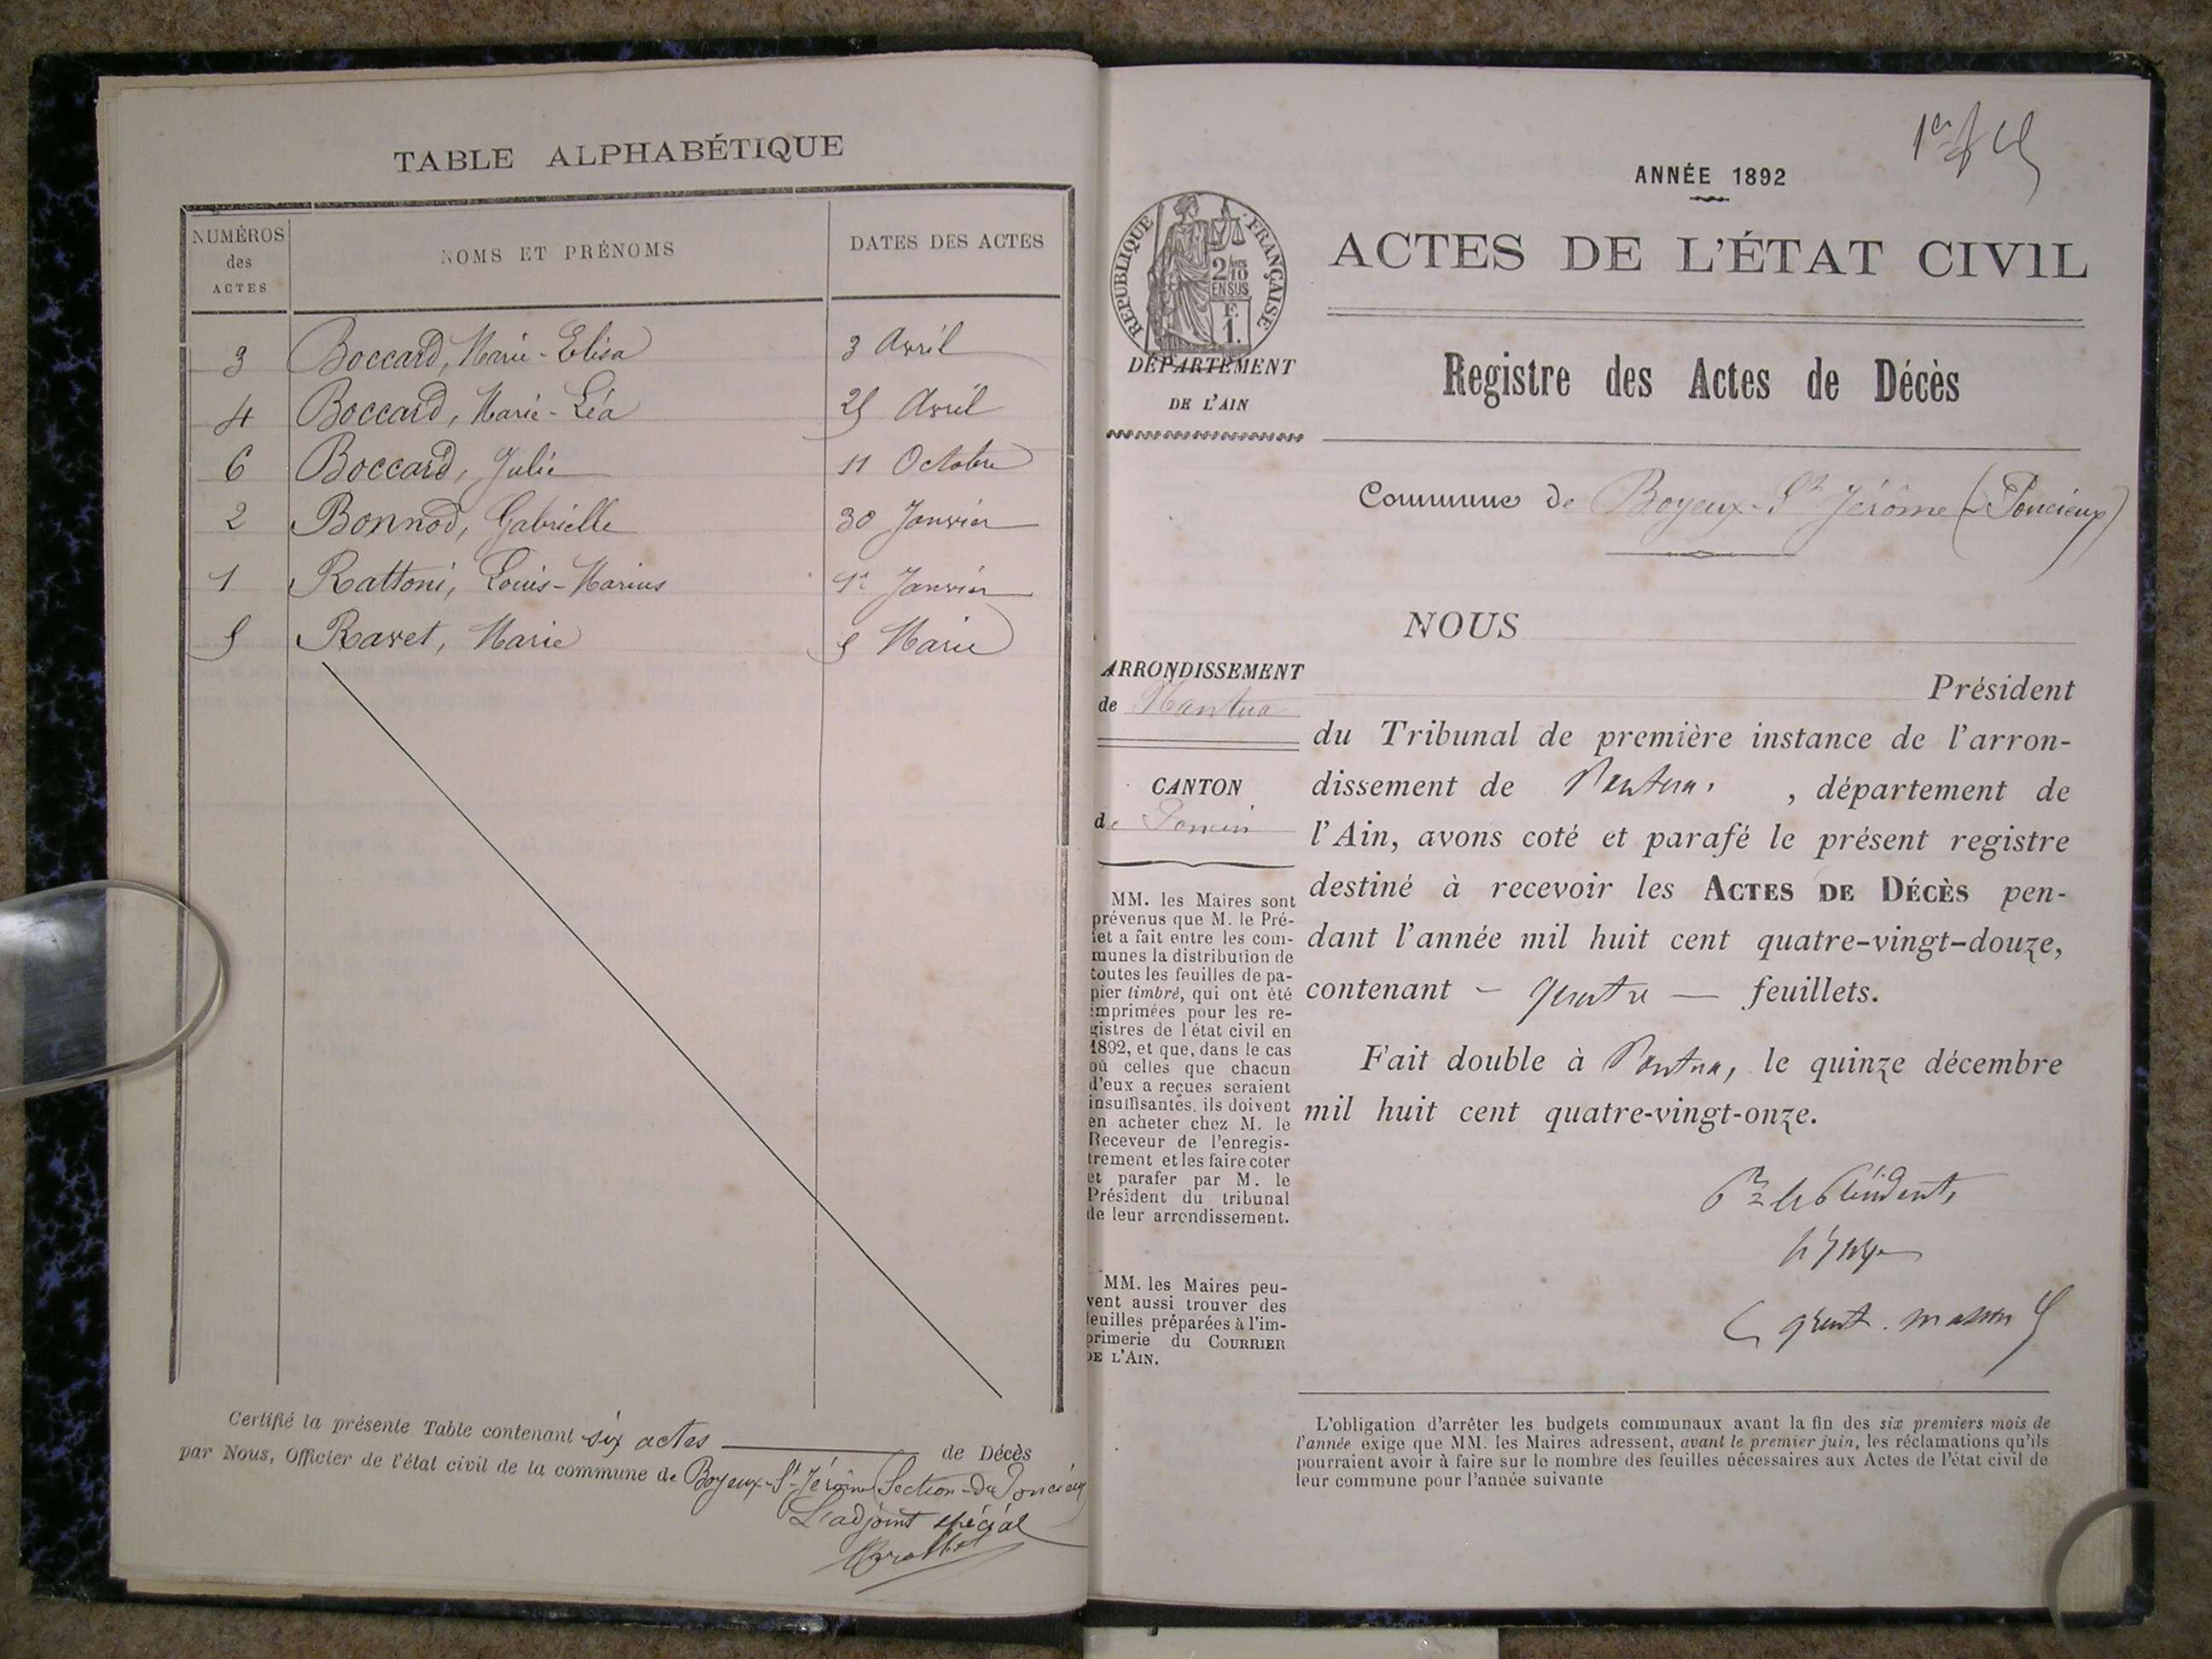 TABLE ALPHABÉTIQUE
NUMÉROS
des
ACTES
NOMS ET PRÉNOMS
DATES DES ACTES
3 Boccard, Marie-Elisa 3 Avril
4 Boccard, Marie-Léa 25 Avril
6 Boccard, Julie 11 Octobre
2 Bonnod, Gabrielle 30 Janvier
1 Rattoni, Louis-Marius 1er Janvier
5 Ravet, Marie 5 Marie
Certifié la présente Table contenant six actes de Décès
par Nous, Officier de l'état civil de la commune de Boyeux-St-Jérôme (Section-de Poncieux
L'adjoint spécial
1er f
ANNÉE 1892
ACTES DE L'ÉTAT CIVIL
RÉPUBLIQUE FRANÇAISE
2/10 EN SUS
F. 1.
DÉPARTEMENT
DE L'AIN
Registre des Actes de Décès
Commune de Boyeux-St Jérôme (Poncieux)
NOUS
ARRONDISSEMENT
de Nantua
CANTON
de Poncin
Président
du Tribunal de première instance de l'arron-
dissement de Nantua, département de
l'Ain, avons coté et parafé le présent registre
destiné à recevoir les ACTES DE DÉCÈS pen-
dant l'année mil huit cent quatre-vingt-douze,
contenant - quatre - feuillets.
Fait double à Nantua, le quinze décembre
mil huit cent quatre-vingt-onze.
Pr le Président,
le Juge
MM. les Maires sont
prévenus que M. le Pré-
fet a fait entre les com-
munes la distribution de
toutes les feuilles de pa-
pier timbré, qui ont été
imprimées pour les re-
gistres de l'état civil en
1892, et que, dans le cas
où celles que chacun
d'eux a reçues seraient
insuffisantes, ils doivent
en acheter chez M. le
Receveur de l'enregis-
trement et les faire coter
et parafer par M. le
Président du tribunal
de leur arrondissement.
MM. les Maires peu-
vent aussi trouver des
feuilles préparées à l'im-
primerie du COURRIER
DE L'AIN.
L'obligation d'arrêter les budgets communaux avant la fin des six premiers mois de
l'année exige que MM. les Maires adressent, avant le premier juin, les réclamations qu'ils
pourraient avoir à faire sur le nombre des feuilles nécessaires aux Actes de l'état civil de
leur commune pour l'année suivante